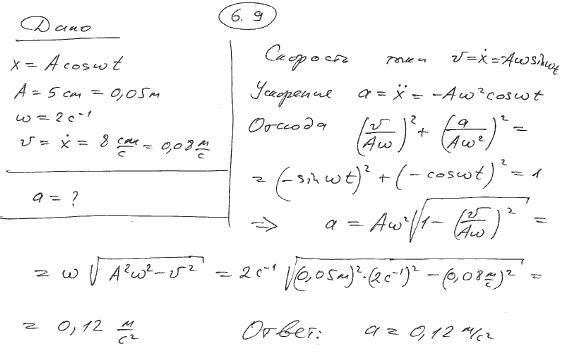 6.9
Дано
x = A cos ωt
A = 5 см = 0,05 м
ω = 2 с⁻¹
v = ẋ = 8 см/с = 0,08 м/с
a = ?
Скорость точки v = ẋ = -Aω sin ωt
Ускорение a = ẍ = -Aω² cos ωt
Отсюда (v/Aω)² + (a/Aω²)² =
= (-sin ωt)² + (-cos ωt)² = 1
⇒ a = Aω² √(1 - (v/Aω)²) =
= ω √(A²ω² - v²) = 2 с⁻¹ √((0,05 м)² · (2 с⁻¹)² - (0,08 м/с)²) =
= 0,12 м/с² Ответ: a = 0,12 м/с²